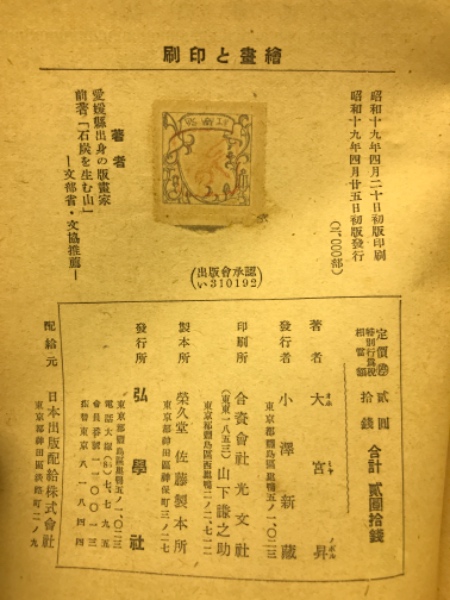 繪畫と印刷
昭和十九年四月二十日初版印刷
昭和十九年四月廿五日初版發行
著者
愛媛縣出身の版畫家
前著「石炭を生む山」
—文部省・文協推薦—
(出版會承認
い310192)
定價 貳圓
特別行爲税
相當額 拾錢
合計 貳圓拾錢
著者 大宮昇
おほ みや ノボル
發行者 小澤新藏
東京都豐島區巢鴨五ノ一、〇二三
印刷所 合資會社光文社
(東東一八五三) 山下謙之助
東京都豐島區西巢鴨二ノ二、七一二
製本所 榮久堂 佐藤製本所
東京都神田區神保町三ノ二七
發行所 弘學社
東京都豐島區巢鴨五ノ一、〇二三
電話大塚(86)七、七九五
會員番號一一〇〇一三
振替東京八一八四四
配給元 日本出版配給株式會社
東京都神田區淡路町二ノ九